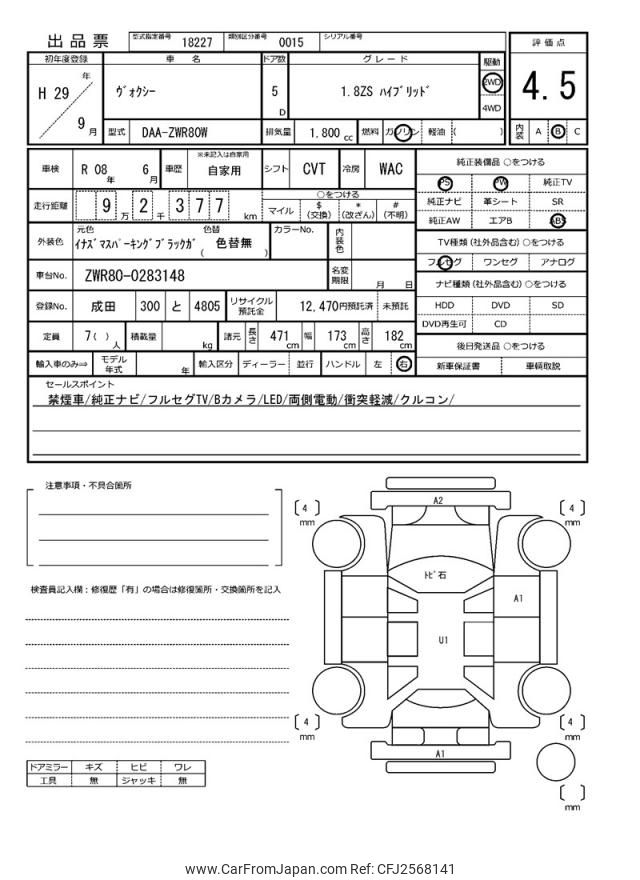 出品票 型式指定番号 18227 類別区分番号 0015 シリアル番号
評価点
4.5
内装 A B C
初年度登録 車名 ドア数 グレード 駆動
H 29 年 9 月 ヴォクシー 5 D 1.8ZS ハイブリッド 2WD 4WD
型式 DAA-ZWR80W 排気量 1.800 cc 燃料 ガソリン 軽油 ( )
車検 R 08 年 6 月 車歴 ※未記入は自家用 自家用 シフト CVT 冷房 WAC
走行距離 9 万 2 千 3 7 7 km ○をつける
マイル $ (交換) * (改ざん) # (不明)
外装色 元色 色替 カラーNo. 内装色
イナズマスパーキングブラックガ ( 色替無 )
車台No. ZWR80-0283148 名変期限 月 日
登録No. 成田 300 と 4805 リサイクル預託金 12,470円預託済 未預託
定員 7 ( ) 人 積載量 kg 諸元 長さ 471 cm 幅 173 cm 高さ 182 cm
輸入車のみ⇒ モデル年式 年 輸入区分 ディーラー 並行 ハンドル 左 右
純正装備品 ○をつける
PS PW 純正TV
純正ナビ 革シート SR
純正AW エアB ABS
TV種類 (社外品含む) ○をつける
フルセグ ワンセグ アナログ
ナビ種類 (社外品含む) ○をつける
HDD DVD SD
DVD再生可 CD
後日発送品 ○をつける
新車保証書 車輌取説
セールスポイント
禁煙車/純正ナビ/フルセグTV/Bカメラ/LED/両側電動/衝突軽減/クルコン/
注意事項・不具合箇所
検査員記入欄：修復歴「有」の場合は修復箇所・交換箇所を記入
ドアミラー キズ ヒビ ワレ
工具 無 ジャッキ 無
[ 4 ] mm
A2
[ 4 ] mm
トビ石
A1
U1
[ 4 ] mm
A1
[ 4 ] mm
[ ] mm
www.CarFromJapan.com Ref: CFJ2568141